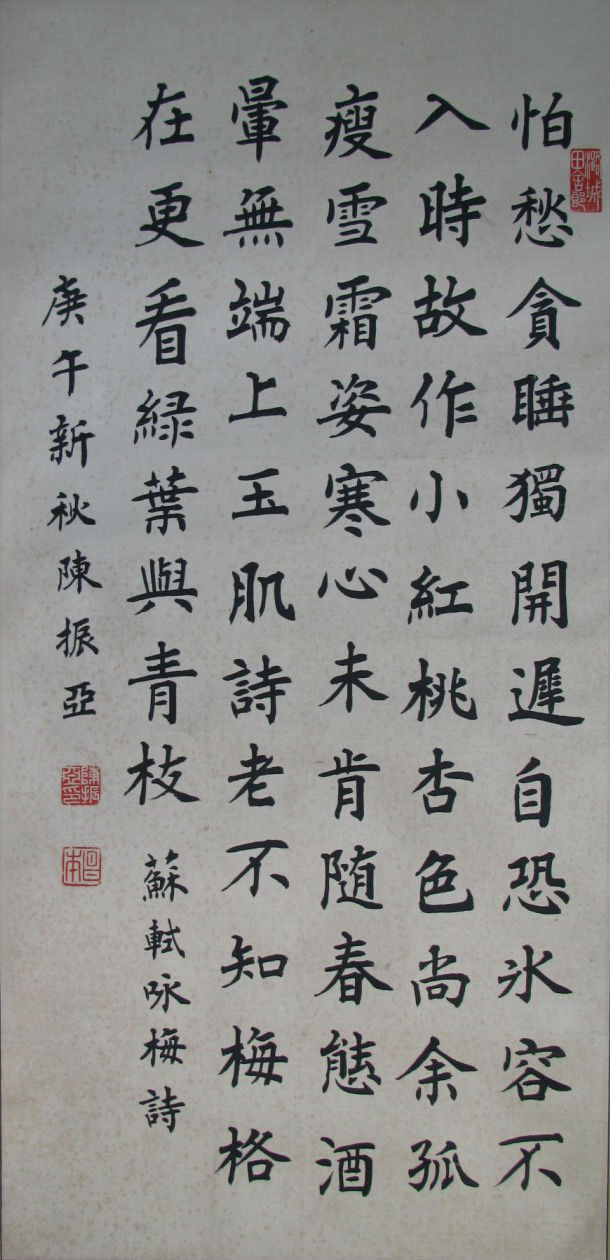 怕愁貪睡獨開遲自恐氷容不
入時故作小紅桃杏色尚余孤
瘦雪霜姿寒心未肯随春態酒
暈無端上玉肌詩老不知梅格
在更看綠葉與青枝
蘇軾咏梅詩
庚午新秋陳振亞
潞城
田舍郎
陳振
亞印